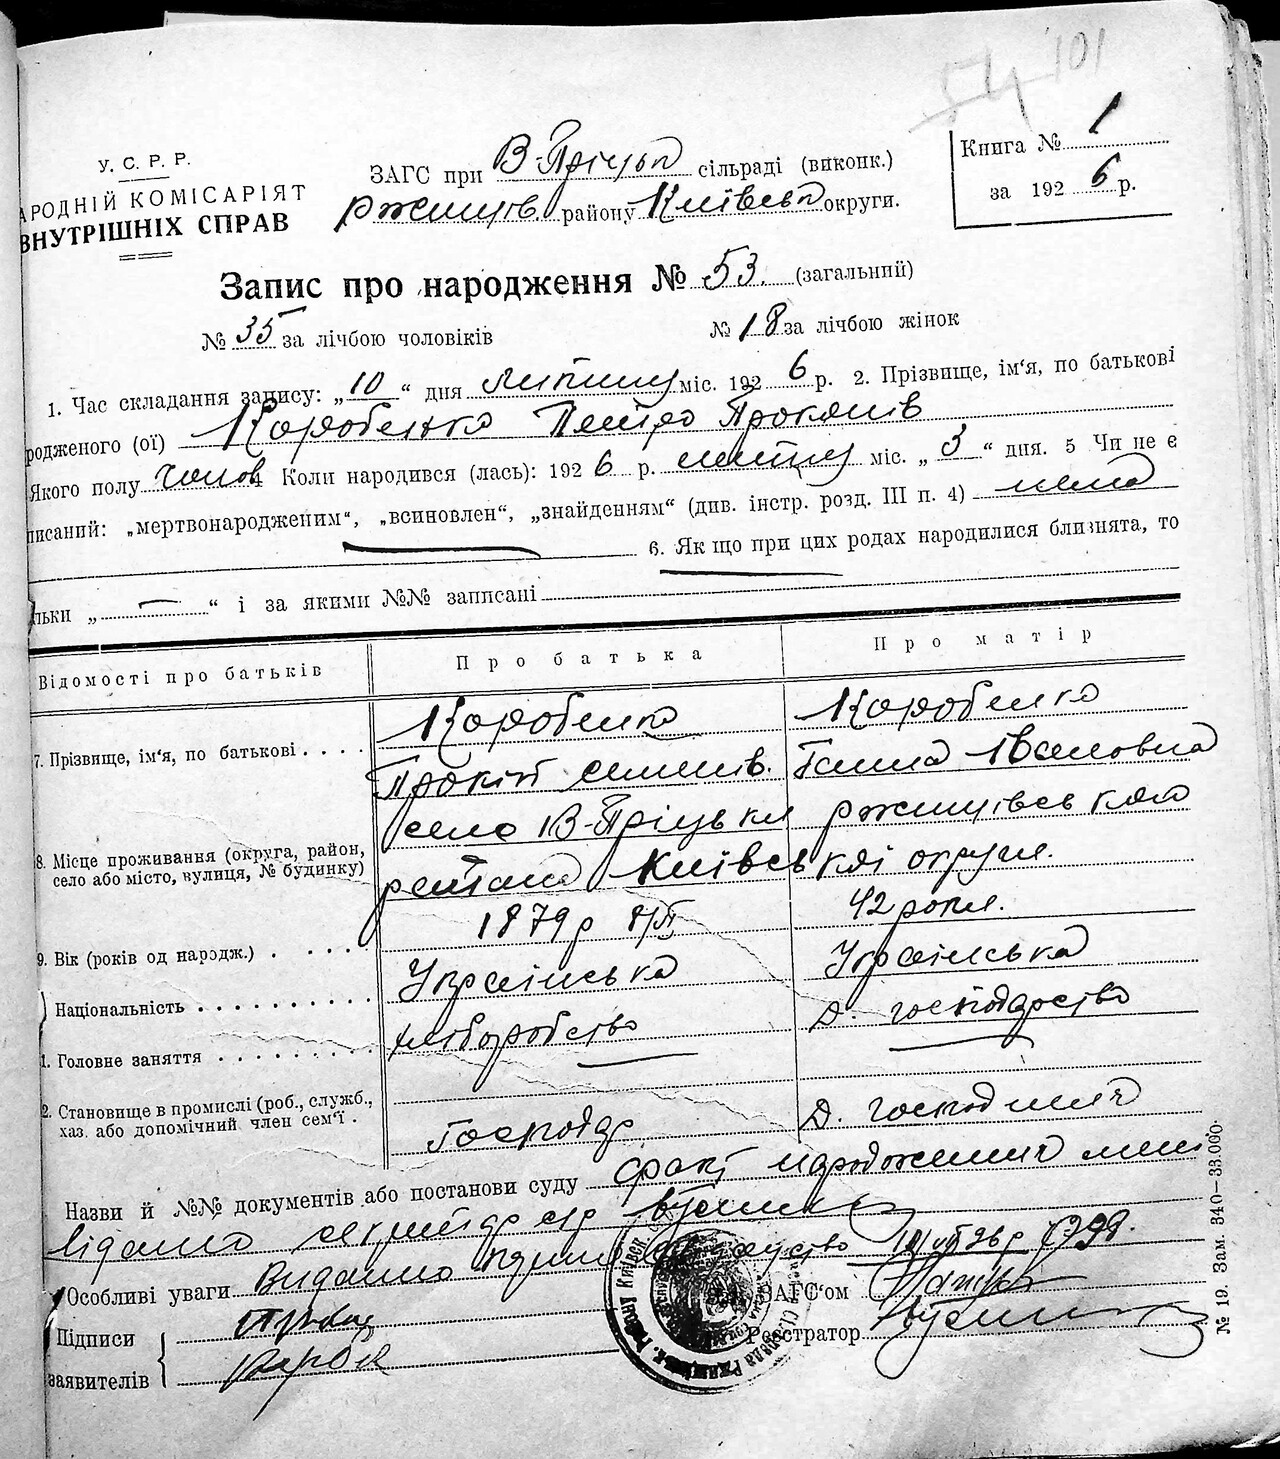 54 101
У. С. Р. Р.
АРОДНІЙ КОМІСАРІЯТ
ВНУТРІШНІХ СПРАВ
ЗАГС при В-Пріцьк сільраді (виконк.)
Ржищів. району Київськ округи.
Книга № 1
за 1926 р.
Запис про народження № 53. (загальний)
№ 35 за лічбою чоловіків № 18 за лічбою жінок
1. Час складання запису: „10“ дня липня міс. 1926 р. 2. Прізвище, ім'я, по батькові
родженого (ої) Коробенко Петро Прокопів
Якого полу чолов Коли народився (лась): 1926 р. липня міс. „3“ дня. 5 Чи не є
писаний: „мертвонародженим“, „всиновлен“, „знайденням“ (див. інстр. розд. III п. 4) нема
6. Як що при цих родах народилися близнята, то
льки „ — “ і за якими №№ записані
Відомості про батьків Про батька Про матір
7. Прізвище, ім'я, по батькові . . . .
Коробенко Коробенко
Прокіп Семенів. Ганна Івановна
8. Місце проживання (округа, район,
село або місто, вулиця, № будинку)
село В-Пріцьки Ржищівського
району Київської округи.
9. Вік (років од народж.) . . . . . 1879 р 8/II 42 роки.
Національність . . . . . . . . . Українська Українська
1. Головне заняття . . . . . . . . хліборобство Д. господарство
2. Становище в промислі (роб., служб.,
хаз. або допомічний член сем'ї .
Господар Д. господиня
Назви й №№ документів або постанови суду факт народження мені
відомо секретар с/р
Особливі уваги Видано
Підписи
заявителів
ЗАГС'ом
Реєстратор
№ 19. Зам. 340—33.000.